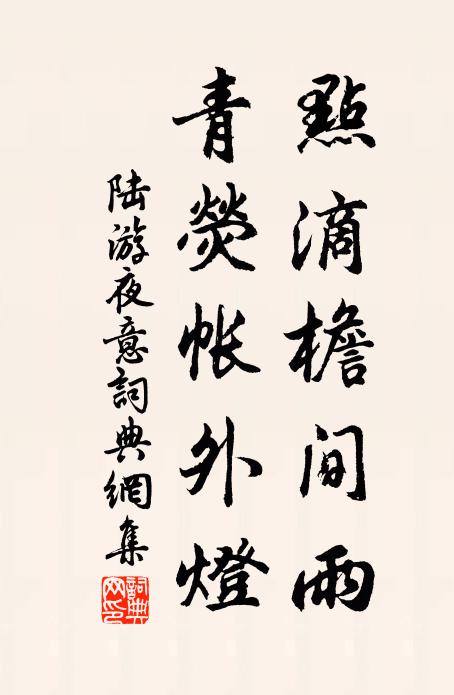 點滴檐間雨
青熒帳外燈
陆游夜意詞典網集
詞典网印